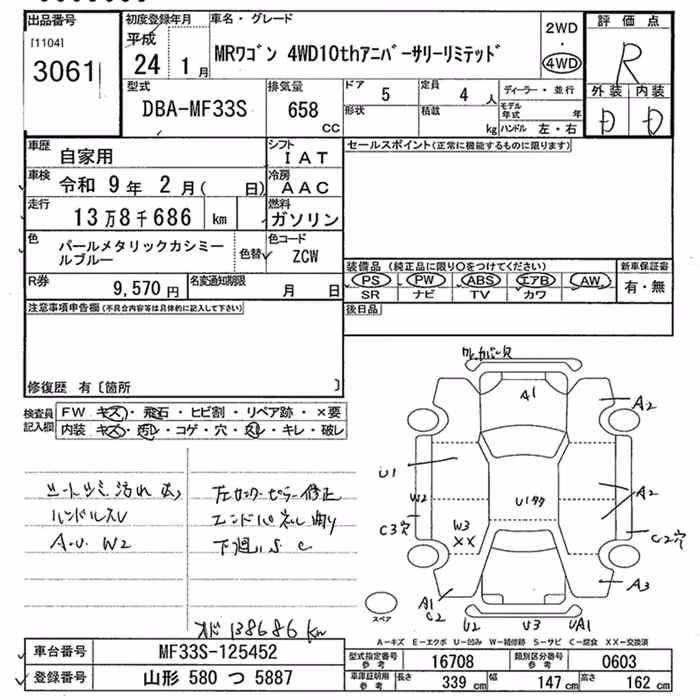 出品番号
[1104]
3061
初度登録年月
平成
24 1月
車名・グレード
MRワゴン 4WD10thアニバーサリーリミテッド
2WD
・
4WD
評価点
R
型式
DBA-MF33S
排気量
658
CC
ドア 5
定員 4 人
形状
積載 kg
ディーラー・並行
モデル年式 年
ハンドル 左・右
外装 内装
D D
車歴 自家用
シフト IAT
車検 令和 9年 2月( 日)
冷房 AAC
走行 13万8千686 km
燃料 ガソリン
色 パールメタリックカシミールブルー
色替
色コード ZCW
R券 9,570円
名変通知期限 月 日
セールスポイント(正常に機能するものに限ります)
装備品 (純正品に限り○をつけてください)
新車保証書
PS PW ABS エアB AW
SR ナビ TV カワ
有・無
注意事項申告欄(不具合内容等は具体的に記入して下さい)
後日品
修復歴 有〔箇所 〕
検査員記入欄
FW キズ・飛石・ヒビ割・リペア跡・×要
内装 キズ・汚レ・コゲ・穴・スレ・キレ・破レ
シートシミ汚れ
ハンドルスレ
A・U W2
左センターピラー修正
エンドパネル曲り
下廻りS C
A1
A2
U1
W2
U1タタ
A2
C3穴
W3
XX
C2穴
A1
C2
A3
U2 U3 UA1
スペア
138686 km
A-キズ E-エクボ U-凹み W-補修跡 S-サビ C-腐食 XX-交換済
車台番号 MF33S-125452
登録番号 山形 580 つ 5887
型式指定番号 参考 16708
類別区分番号 参考 0603
車庫証明用 参考 長さ 339cm 幅 147cm 高さ 162cm